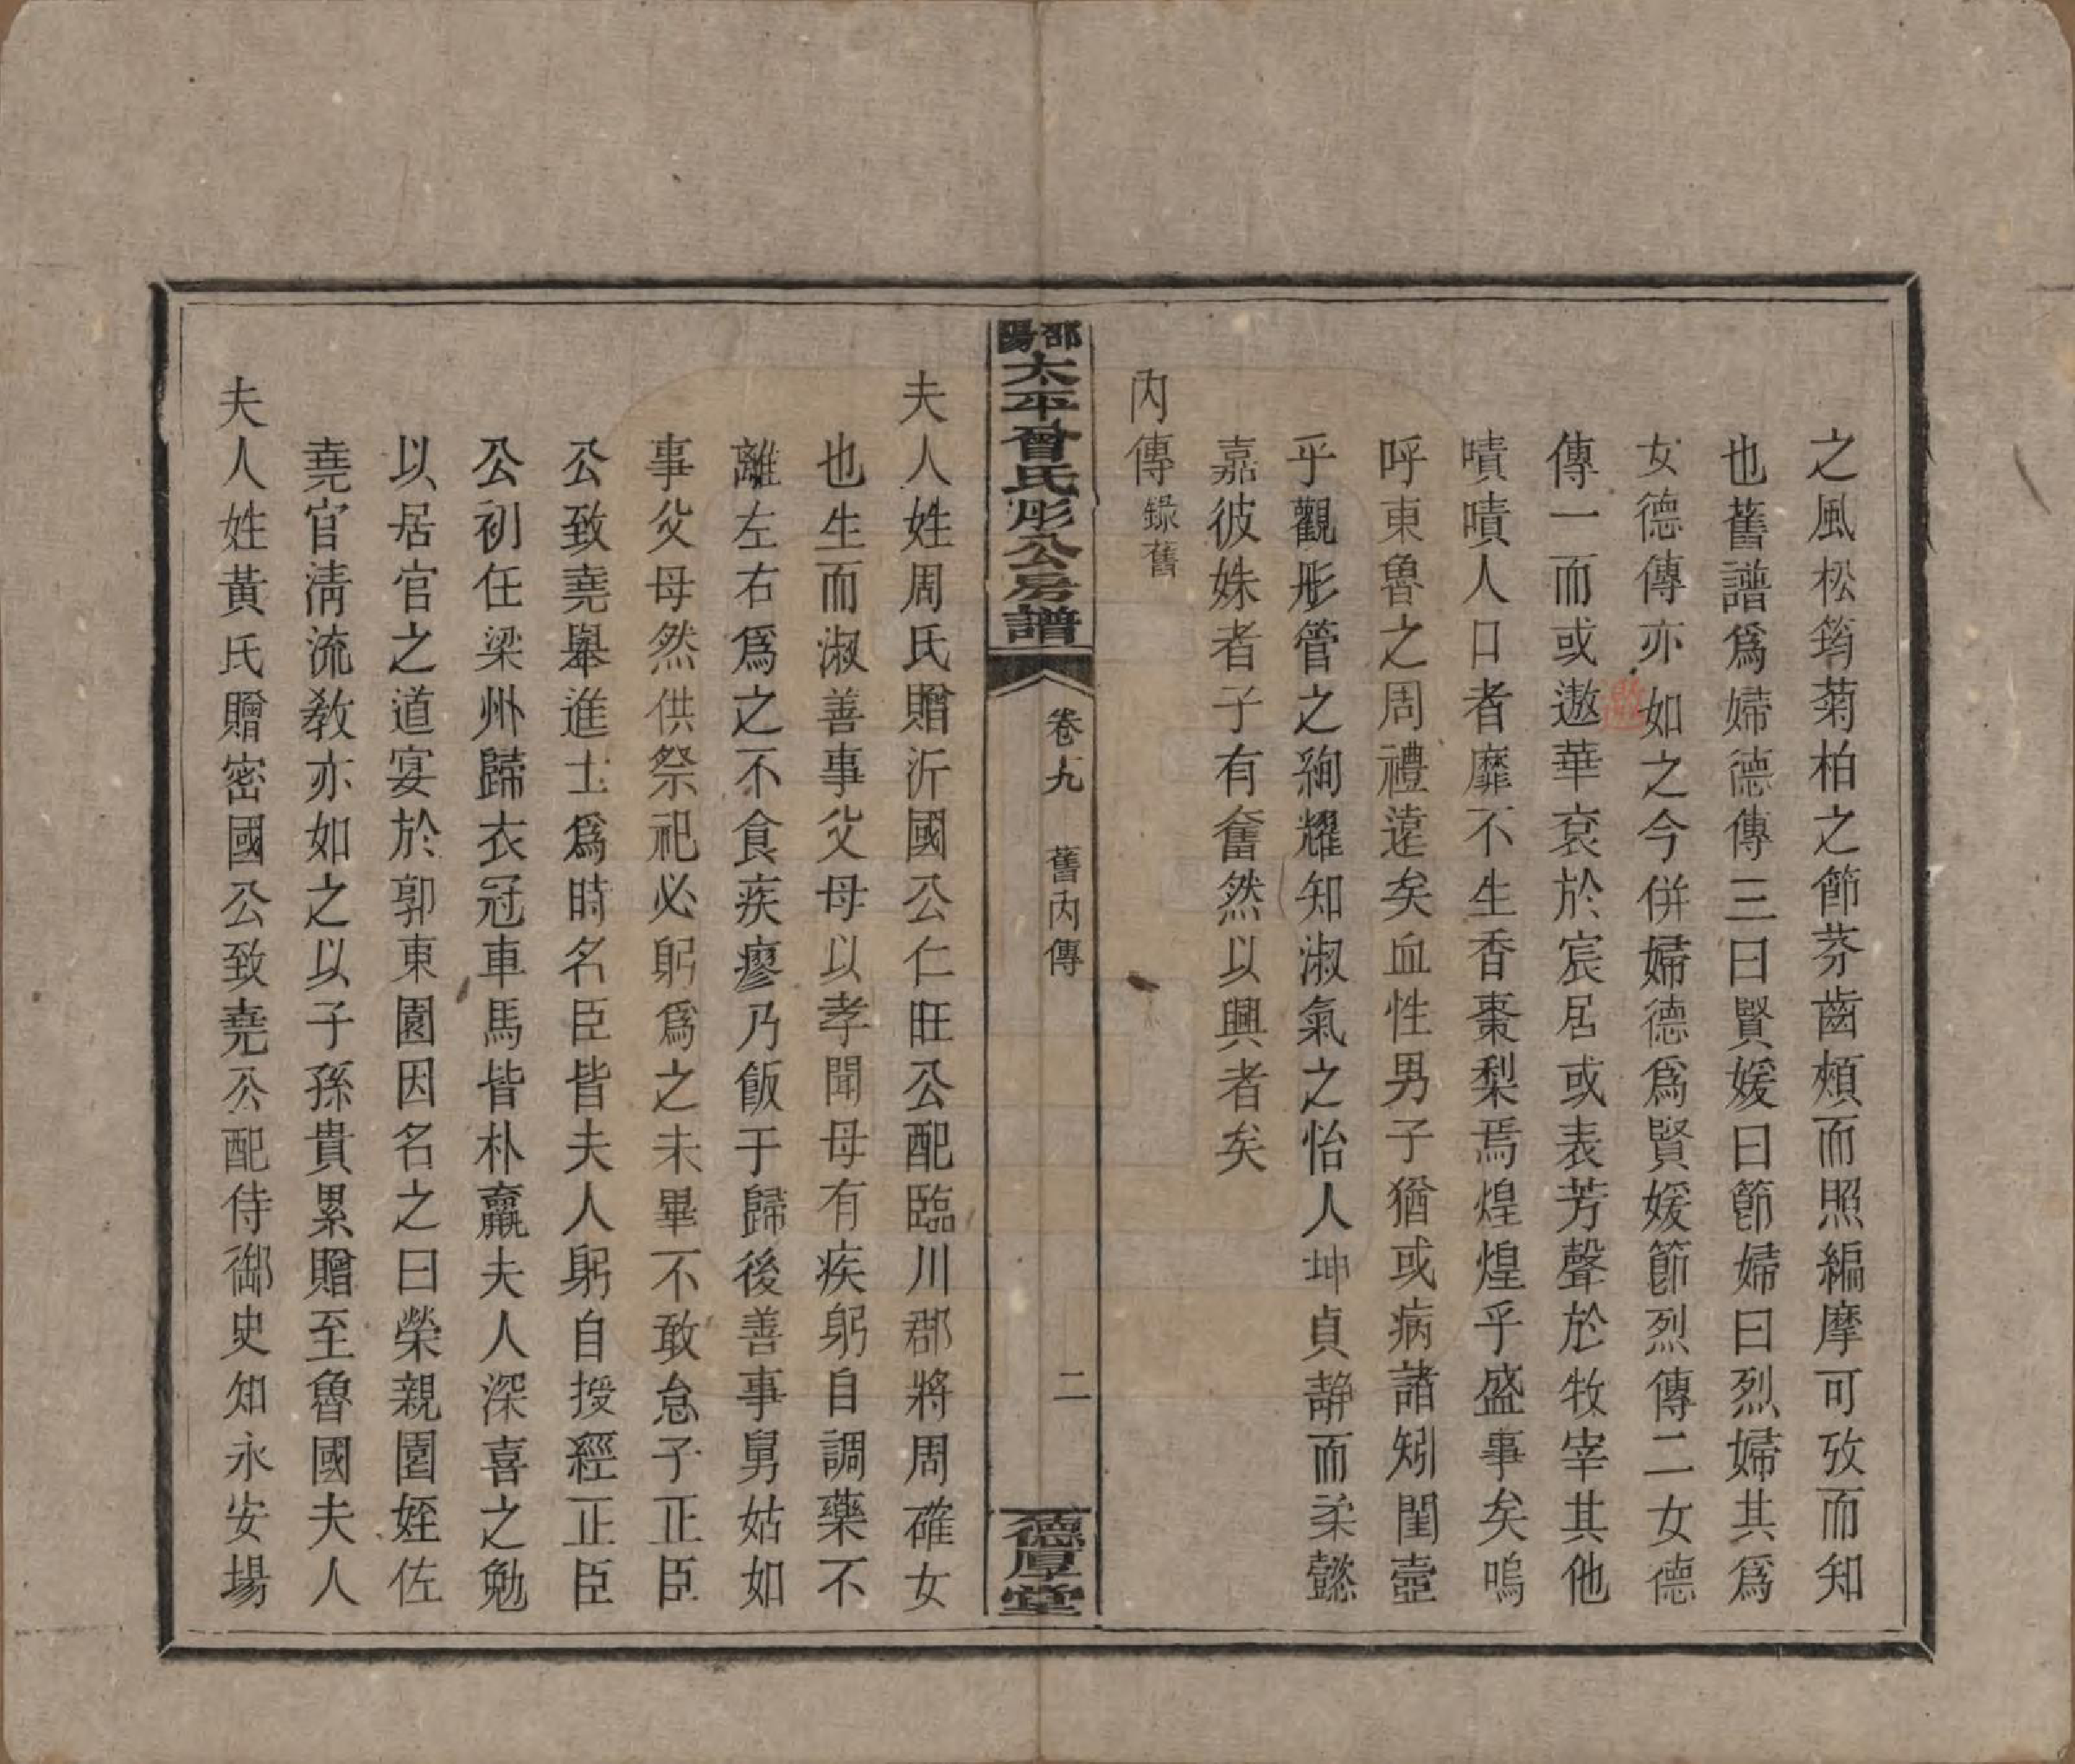 之風松筠菊柏之節芬齒頰而照編摩可攷而知
也舊譜爲婦德傳三曰賢媛曰節婦曰烈婦其爲
女德傳亦如之今併婦德爲賢媛節烈傳二女德
傳一而或遨華衮於宸居或表芳聲於牧宰其他
嘖嘖人口者靡不生香棗梨焉煌煌乎盛事矣嗚
呼東魯之周禮遠矣血性男子猶或病諸矧閨壼
乎觀彤管之絢耀知淑氣之怡人坤貞静而柔懿
嘉彼姝者子有奮然以興者矣
內傳錄舊
邵陽太平曾氏彤公房譜
卷九 舊內傳 二
德厚堂
夫人姓周氏贈沂國公仁旺公配臨川郡將周確女
也生而淑善事父母以孝聞母有疾躬自調藥不
離左右爲之不食疾瘳乃飯于歸後善事舅姑如
事父母然供祭祀必躬爲之未畢不敢怠子正臣
公致堯舉進士爲時名臣皆夫人躬自授經正臣
公初任梁州歸衣冠車馬皆朴羸夫人深喜之勉
以居官之道宴於郭東園因名之曰榮親園姪佐
堯官淸流敎亦如之以子孫貴累贈至魯國夫人
夫人姓黃氏贈密國公致堯公配侍御史知永安場
遨